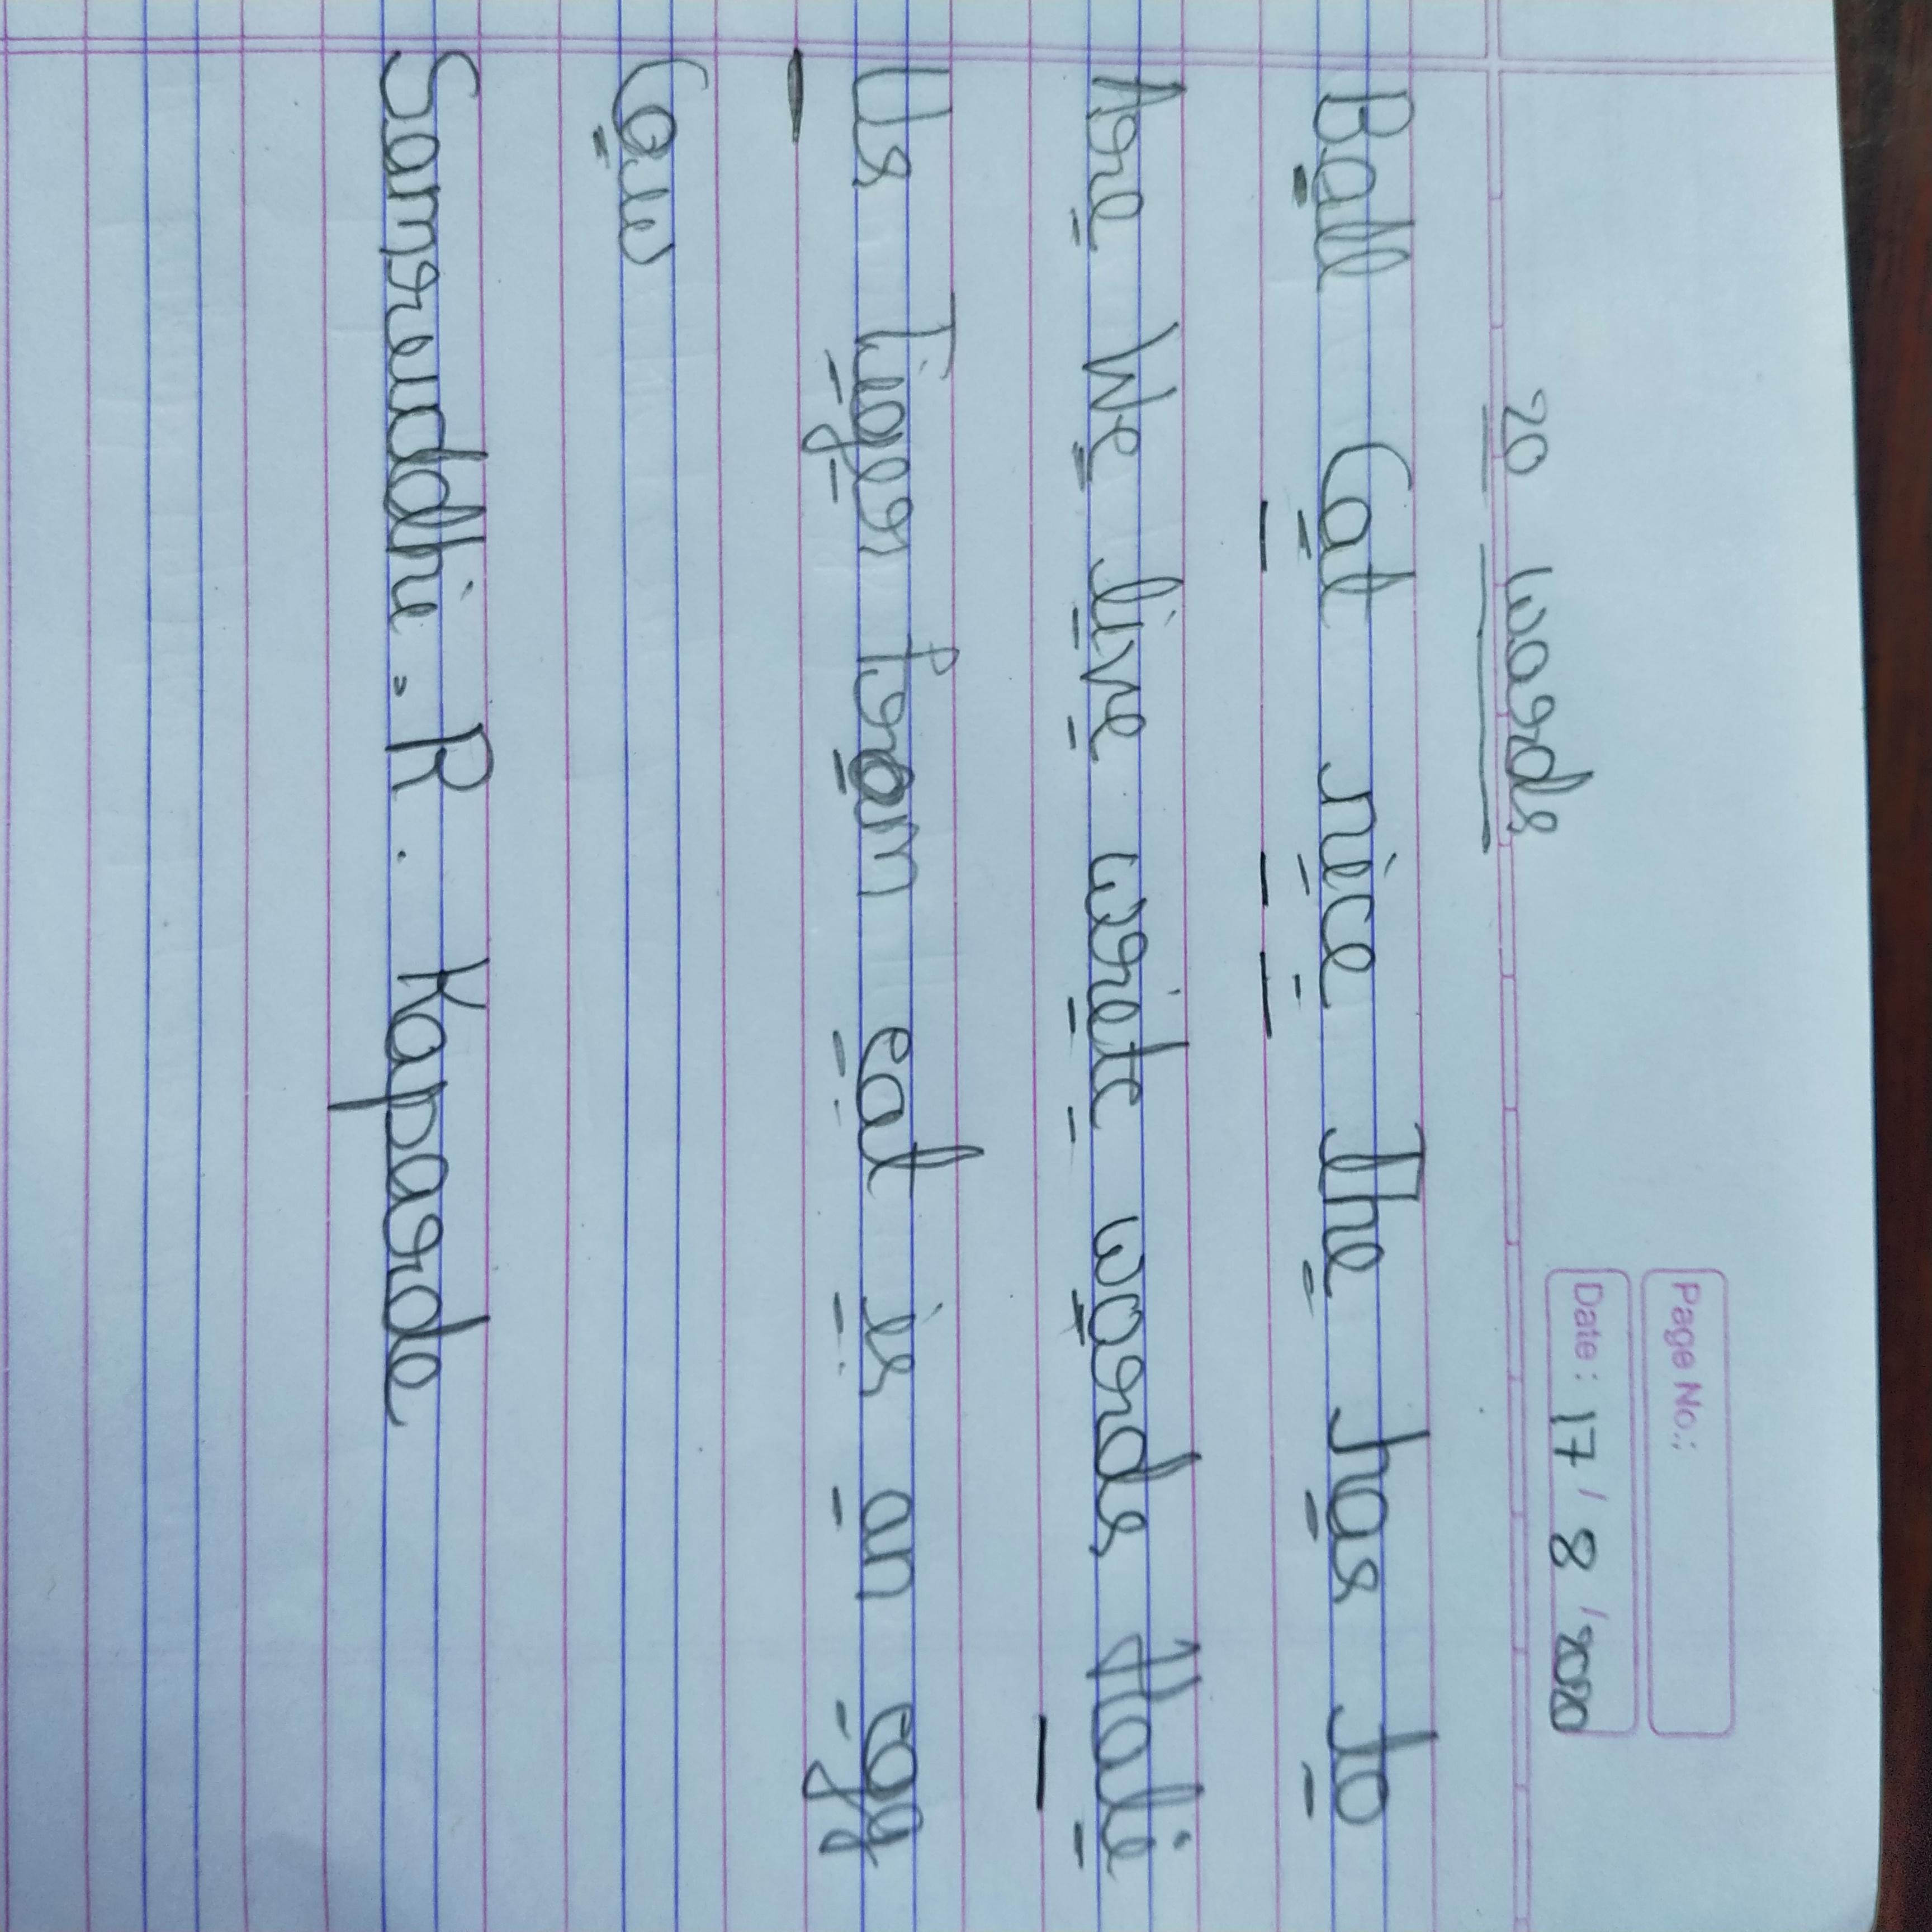 Page No.:
Date: 17 / 8 / 2020
20 words
Ball Cat nice The has to
Are We live write words
Us Tiger from eat is an egg
Cow
Samruddhi. R. Kaparde